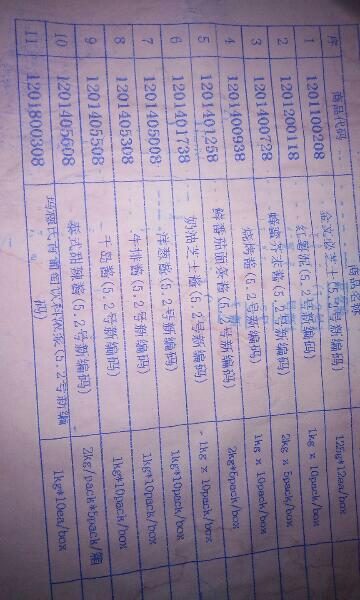 序 商品代码 商品名称
1 1201100208 芝士(5.2号新编码) 125g*12ea/box
2 1201200118 (5.2号新编码) 1kg x 10pack/box
3 1201400728 蜂蜜芥末酱(5.2号新编码) 2kg x 5pack/box
4 1201400938 烧烤酱(5.2号新编码) 1kg x 10pack/box
5 1201401258 鲜番茄面条酱(5.2号新编码) 2kg*6pack/box
6 1201401738 奶油芝士酱(5.2号新编码) 1kg x 10pack/box
7 1201405008 洋葱酱(5.2号新编码) 1kg*10pack/box
8 1201405308 牛排酱(5.2号新编码) 1kg*10pack/box
9 1201405508 千岛酱(5.2号新编码) 1kg*10pack/box
10 1201405608 泰式甜辣酱(5.2号新编码) 2kg/pack*5pack/箱
11 1201800308 葡萄饮料浓浆(5.2号新编 1kg*10ea/box
码)